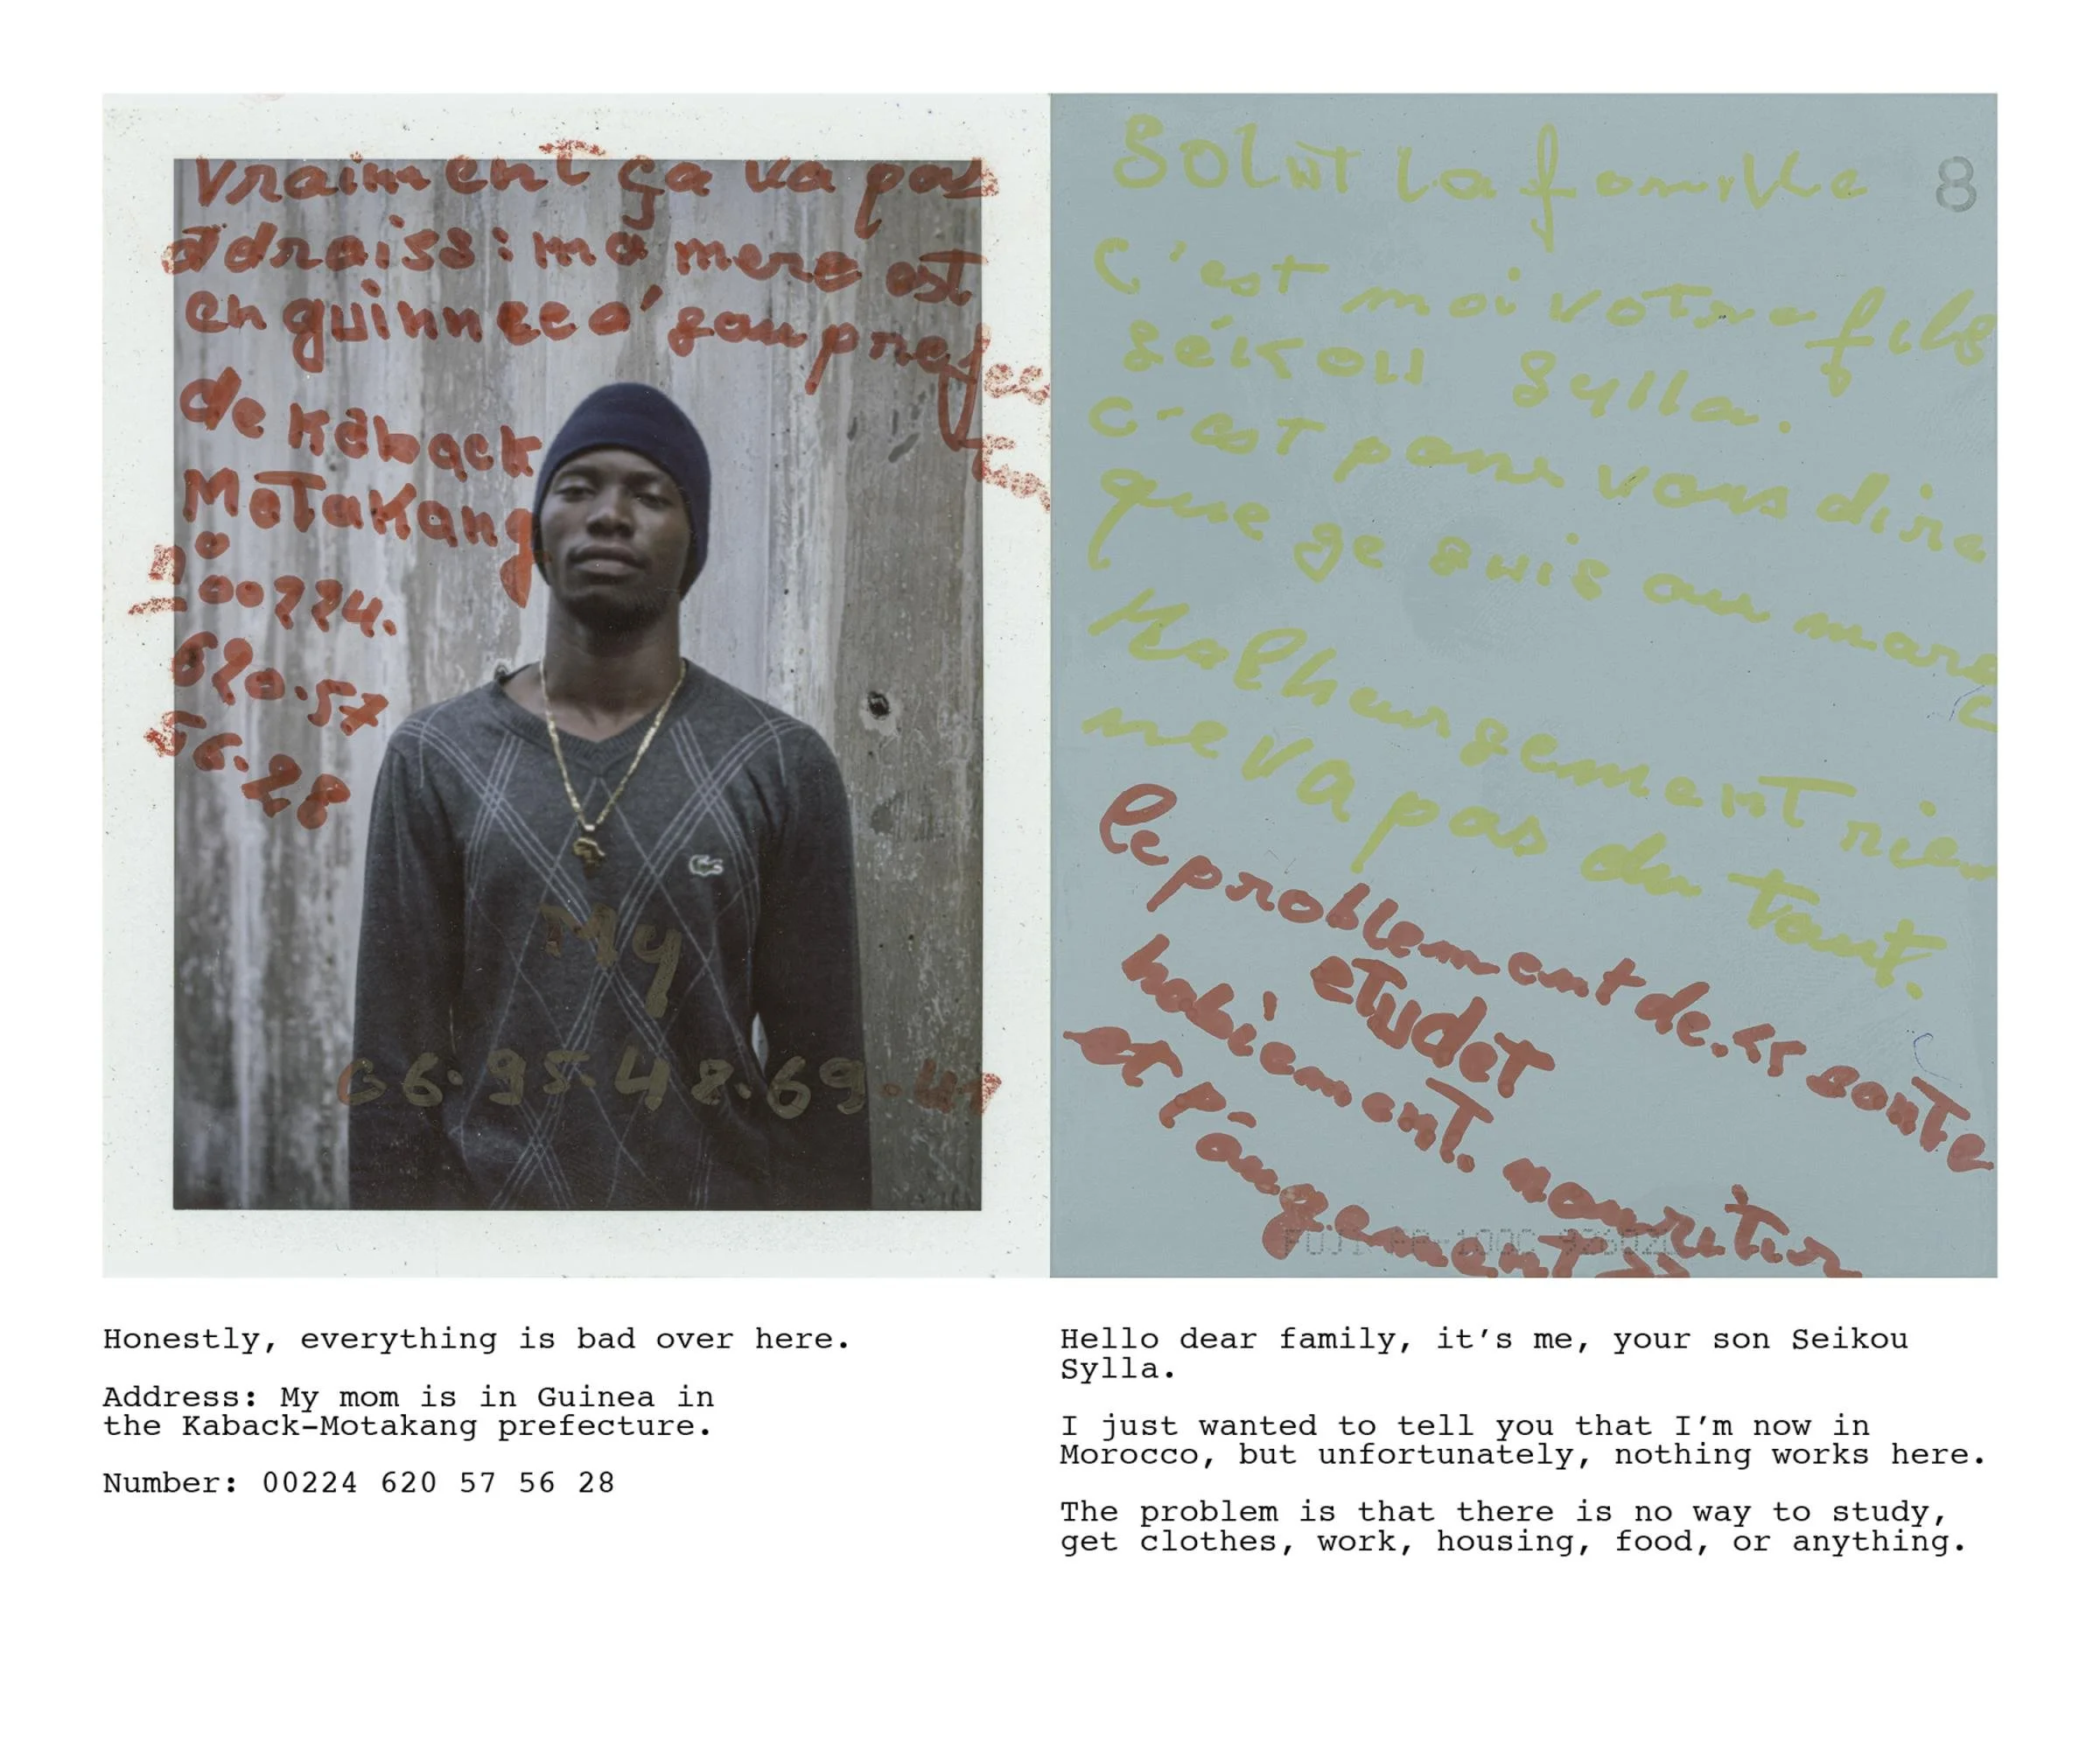 vraiment ça va pas
adraiss: ma mere est
en guinnee a' sou prefec
de Kaback
Motakang
n° 00224.
620.57
56.28
My
06.95.48.69.41
Solut la famille
8
C'est moi votre fils
sékou Sylla.
C'est pour vous dire
que je suis au maroc
Malheursement rien
ne va pas du tout.
le problement de.
sante
etudet
habiement. nouritur
et l'ôugement
FUJI FP-100C
Honestly, everything is bad over here.
Address: My mom is in Guinea in
the Kaback-Motakang prefecture.
Number: 00224 620 57 56 28
Hello dear family, it's me, your son Seikou
Sylla.
I just wanted to tell you that I'm now in
Morocco, but unfortunately, nothing works here.
The problem is that there is no way to study,
get clothes, work, housing, food, or anything.